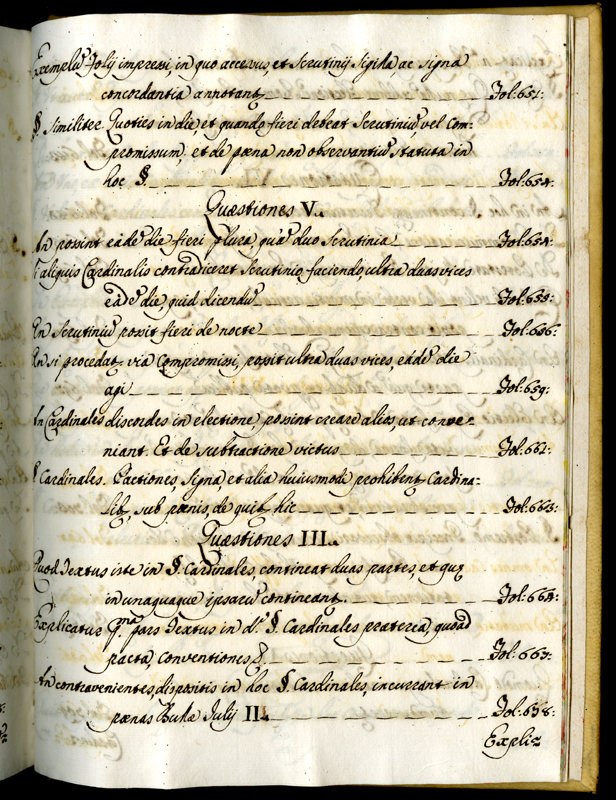 Exemplu' Folij impressi, in quo accessus, et Scrutinij Sigilla ac Signa
concordantia annotant. Fol: 651:
§ Similiter. Quoties in die, et quando fieri debeat Scrutiniu', vel Com-
promissum, et de pœna non observantiu' statuta in
hoc §. Fol: 654:
Quæstiones V.
An possint eadē die fieri plura, quā' duo Scrutinia Fol: 654:
Si aliquis Cardinalis contradiceret Scrutinio faciendo, ultra duas vices
eadē die, quid dicendu' Fol: 655:
An Scrutiniu' possit fieri de nocte Fol: 656:
An si procedat. via Compromissi, possit ultra duas vices, eadē die
agi Fol: 659:
An Cardinales discordes in electione possint creare alios, ut conve-
niant. Et de subtractione victus Fol: 662:
§ Cardinales. Pactiones, Signa, et alia huiusmodi prohibent. Cardina-
lib, sub pœnis, de quib, hic Fol: 663:
Quæstiones III.
Quod Textus iste in §. Cardinales, contineat duas partes, et quæ
in unaquaque ipsaru' contineant. Fol: 664:
Explicatur pma pars Textus in d.º §. Cardinales præterea, quoad
pacta, conventiones & Fol: 667:
An contravenientes, dispositis in hoc §. Cardinales, incurrant in
pœnas Bullæ Julij II. Fol: 678:
Expli-